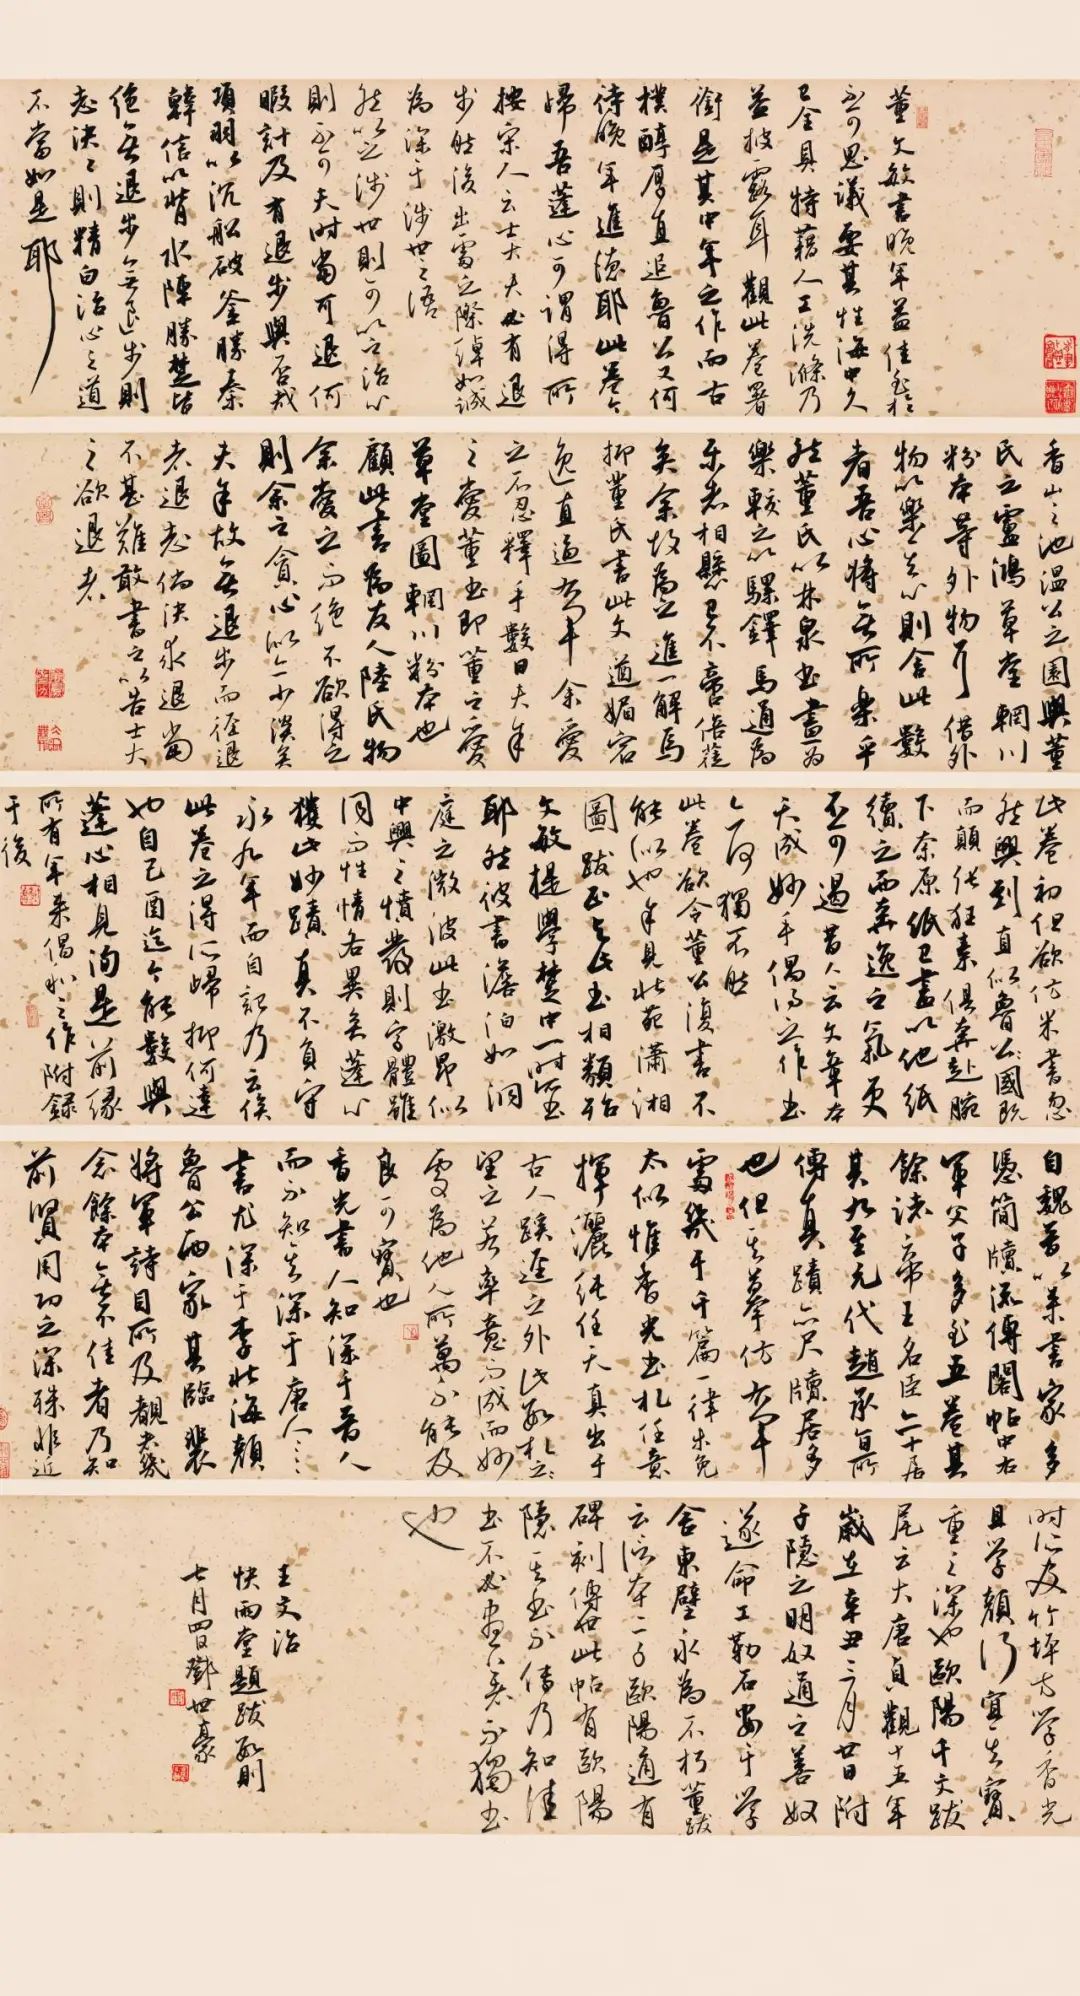 董文敏書晚年益佳至於
不可思議要其性海中久
已全具特藉人工洗滌乃
益披露耳觀此卷署
銜是其中年之作而古
樸醇厚直追魯公又何
待晚年進德耶此卷今
歸吾蓬心可謂得所
按宋人云士大夫必有退
步然後出處之際綽如誠
為深于涉世之語
然以之涉世則可以之治心
則不可夫時當可退何
暇計及有退步與否哉
項羽以沉船破釜勝秦
韓信以背水陣勝楚皆
絕無退步無退步則
志決志決則精白治心之道
不當如是耶
香山之池溫公之園與董
氏之盧鴻草堂輞川
粉本等外物耳借外
物以樂其心則舍此數
者吾心將無所樂乎
然董氏以林泉書畫為
樂較之以騾鐸馬通為
樂者相懸已不啻倍蓰
矣余故為之進一解焉
抑董氏書此文遒媚宕
逸直逼右軍余愛
之不忍釋手數日夫余
之愛董書即董之愛
草堂圖輞川粉本也
顧此書為友人陸氏物
余愛之而絕不欲得之
則余之貪心似亦少淡矣
夫余故無退步而徑退
者退志倘決求退當
不甚難敢書之以告士大
之欲退者
此卷初但欲仿米書忽
然興到直似魯公既
而顛張狂素俱奔赴腕
下奈原紙已盡以他紙
續之而奔逸之氣更
不可遏昔人云文章本
天成妙手偶得之作書
亦何獨不然
此卷欲令董公復書不
能似也余見北苑瀟湘
圖跋正與此書相類殆
文敏提學楚中一時書
耶然彼書澹泊如洞
庭之微波此書激昂似
中興之憤發則字體雖
同而性情各異矣蓬心
獲此妙蹟真不負守
永九年而自記乃云俟
此卷之得所歸抑何達
也自己酉迄今能數與
蓬心相見洵是前緣
所有年來倡和之作附錄
于後
自魏晉以來書家多
憑簡牘流傳閣帖中右
軍父子多至五卷其
餘諸帝王名臣亦十居
其九至元代趙承旨所
傳真蹟亦尺牘居多
也但其摹仿右軍
處幾于千篇一律未免
太似惟香光書札任意
揮灑純任天真出于
古人蹊逕之外此數札
望之若率意而成而妙
處為他人所萬不能及
良可寶也
香光書人知深于晉人
而不知其深于唐人唐人
書尤深于李北海顏
魯公兩家其臨裴
將軍詩目所及覩者幾
念餘本無不佳者乃知
前賢用功之深殊非近
時所友竹坪方學香光
且學顏行宜其寶
重之深也歐陽千文跋
尾云大唐貞觀十五年
歲在辛丑三月廿日附
子隱之明奴通之善奴
遂命工勒石安于學
舍東壁永為不朽董跋
云信本一子歐陽通有
碑刻傳世此帖有歐陽
隱其書不傳乃知佳
書不必盡不獨書
也
王文治
快雨堂題跋數則
七月四日鄧世豪